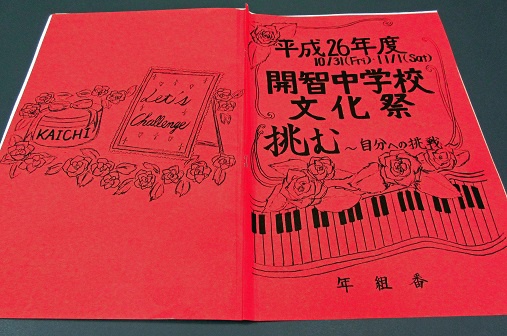 平成26年度
10/31(Fri)・11/1(Sat)
開智中学校
文化祭
挑む
～自分への挑戦
年 組 番
Let's
Challenge
KAICHI